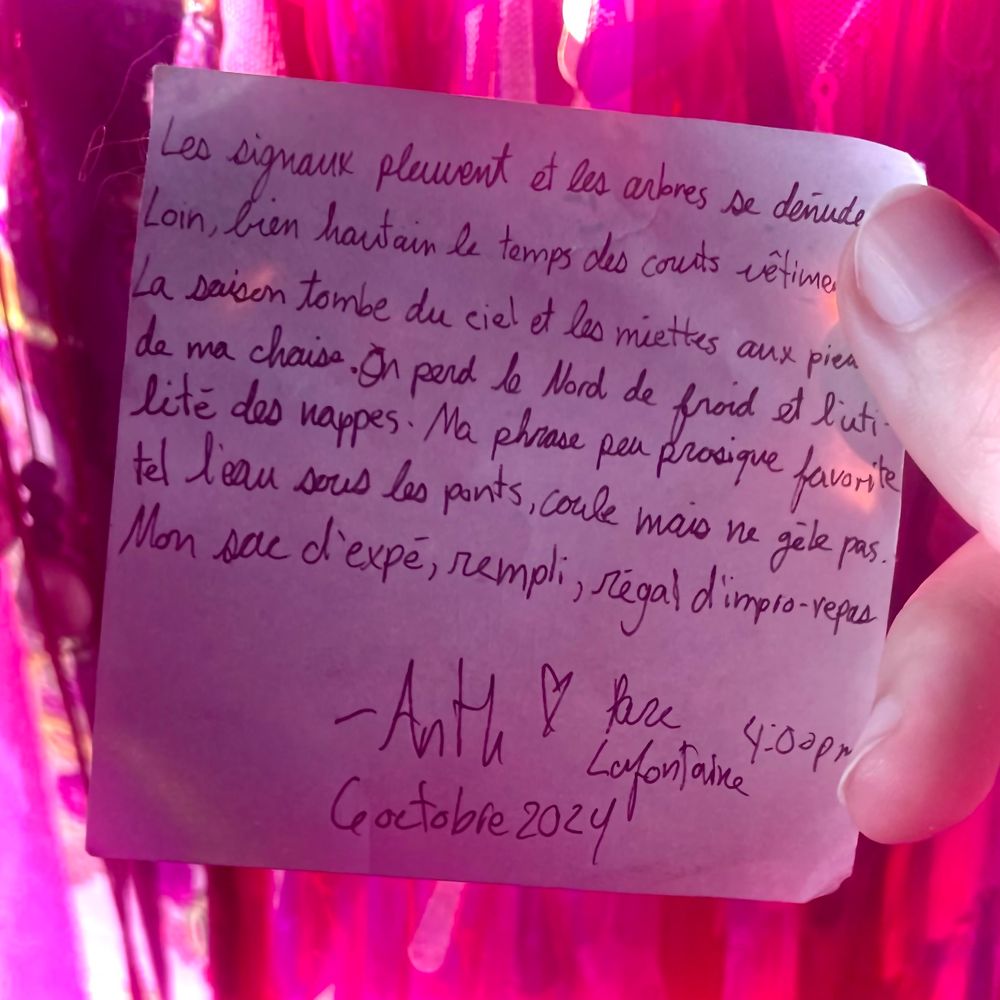 Les signaux pleuvent et les arbres se dénude
Loin, bien hautain le temps des courts vêtime
La saison tombe du ciel et les miettes aux pieu
de ma chaise. On perd le Nord de froid et l'uti-
lité des nappes. Ma phrase peu prosique favorite
tel l'eau sous les ponts, coule mais ne gèle pas.
Mon sac d'expé, rempli, régal d'impro-repas
- Anth ♡ Parc Lafontaine 4:00pm
6 octobre 2024